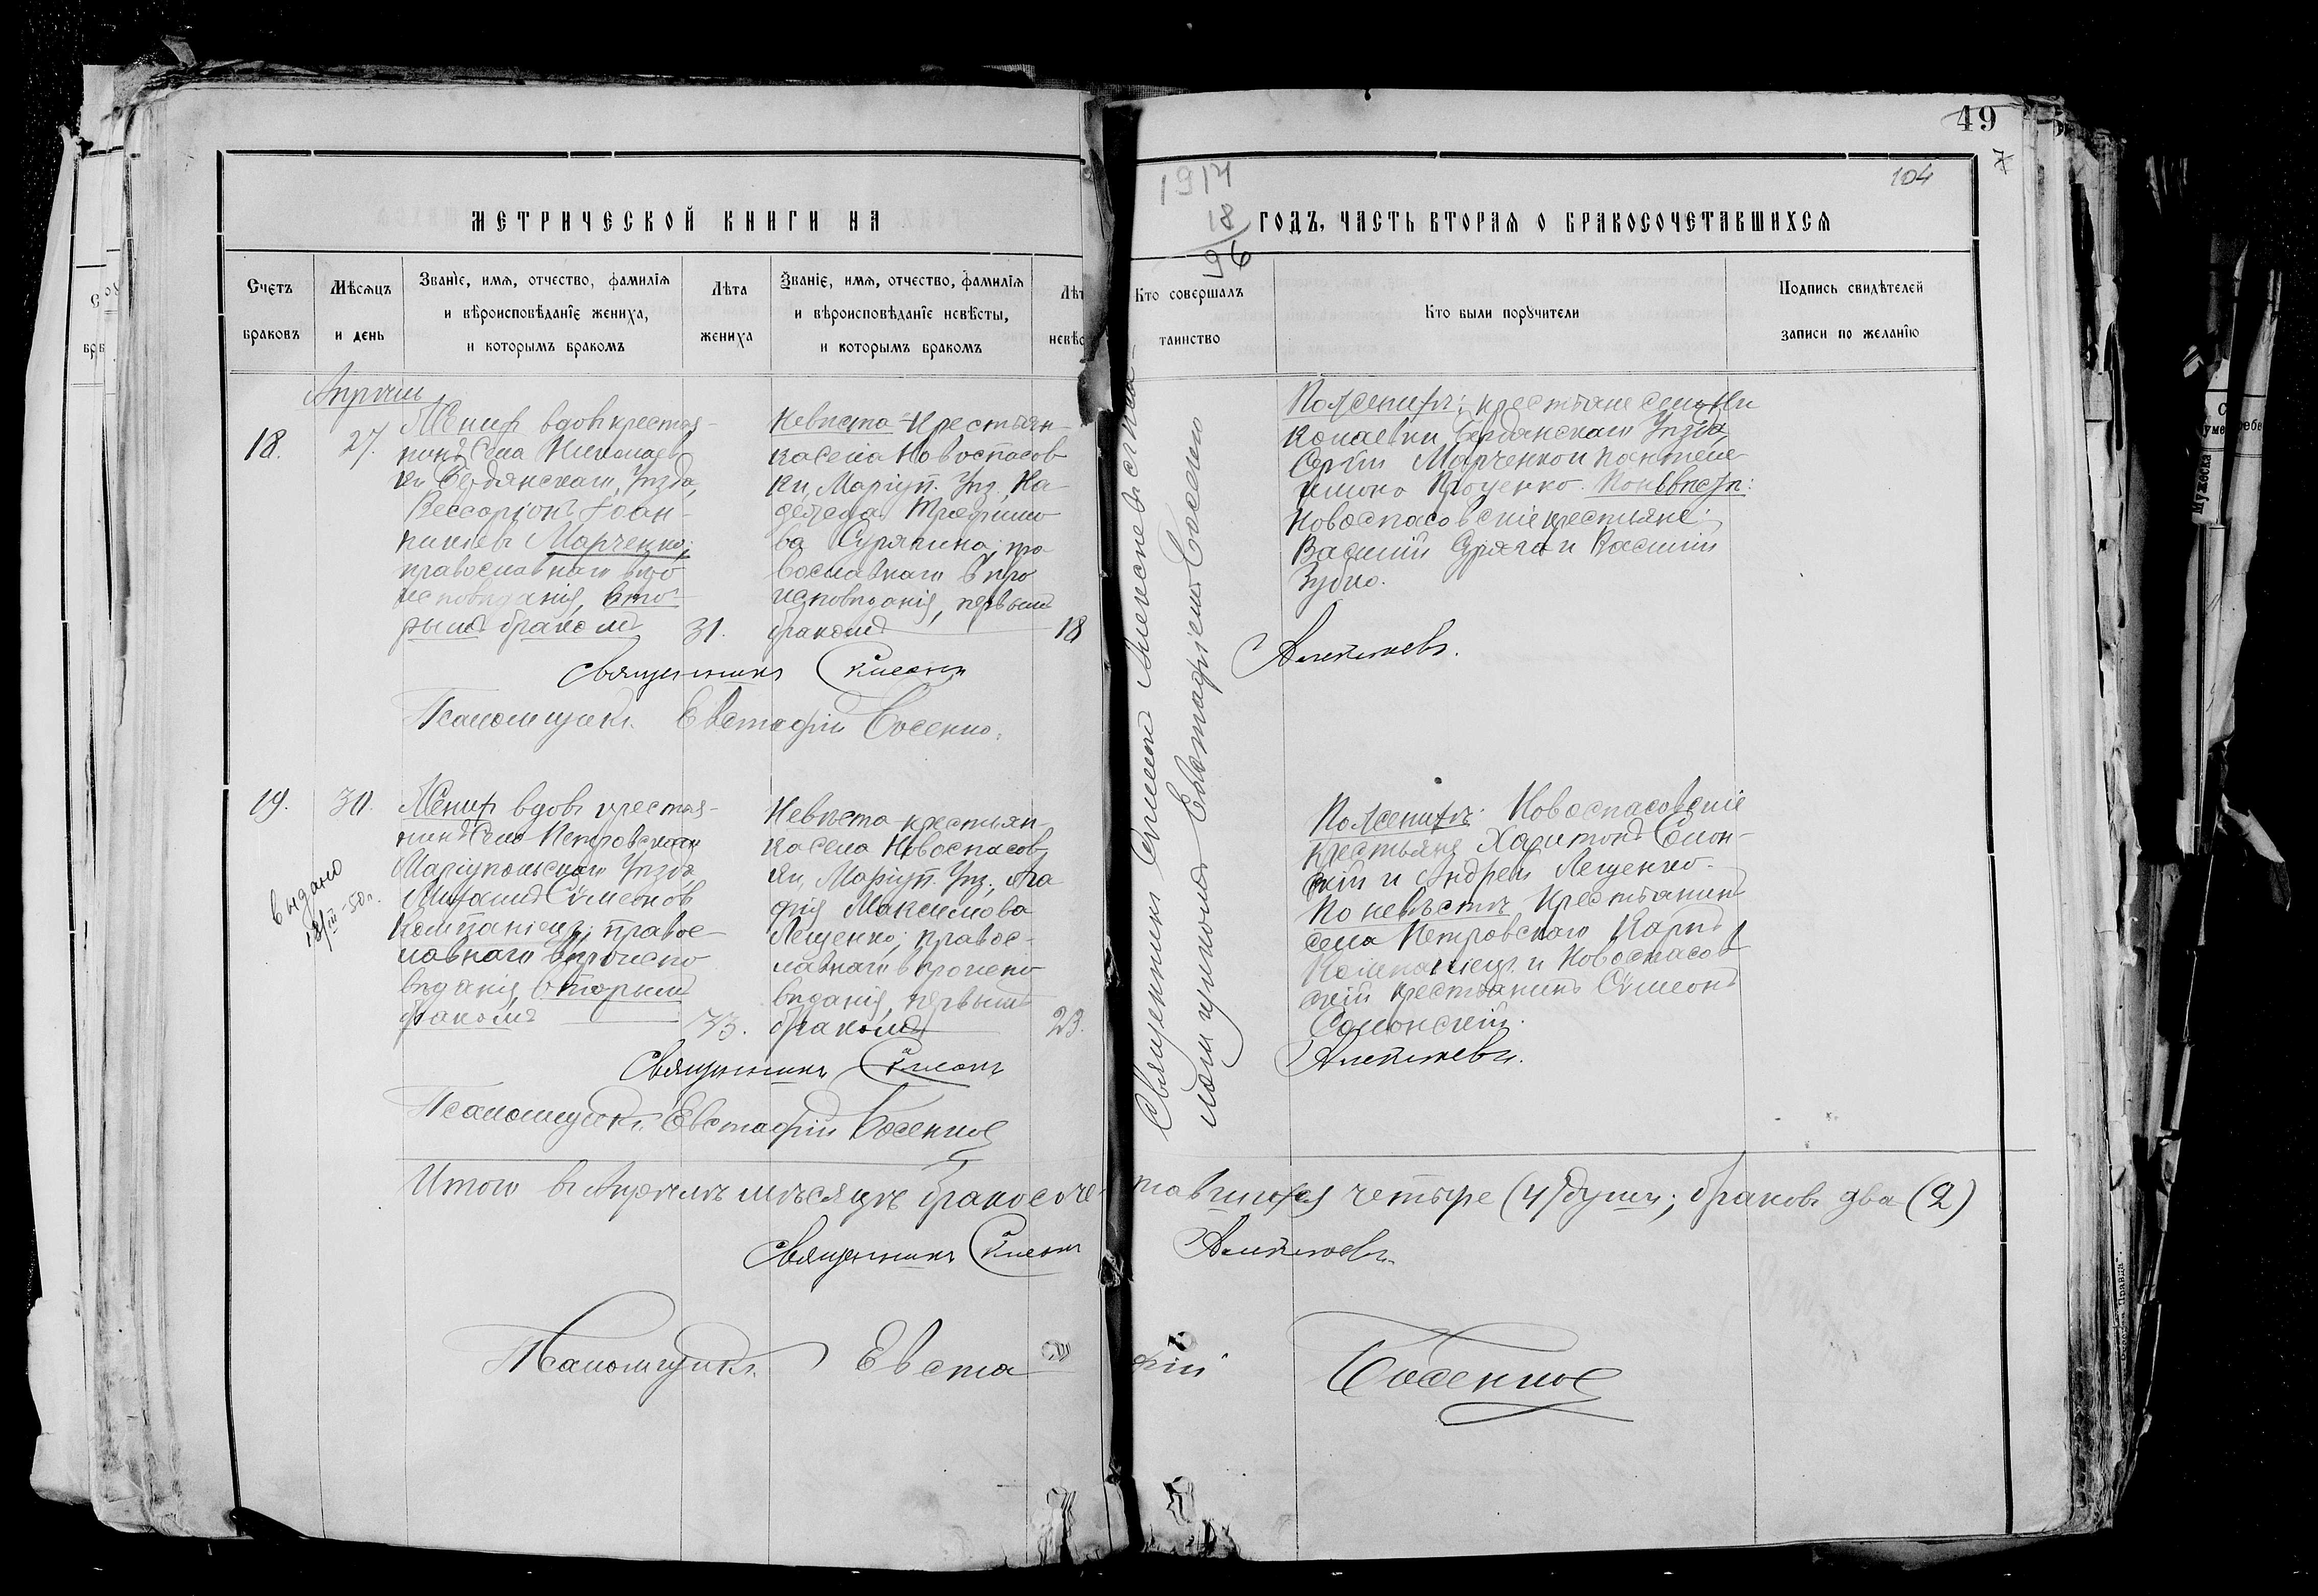 49
7
104
1914
18
96
МЕТРИЧЕСКОЙ КНИГИ НА
ГОДЪ, ЧАСТЬ ВТОРАЯ О БРАКОСОЧЕТАВШИХСЯ
Счетъ браковъ
Мѣсяцъ и день
Званіе, имя, отчество, фамилія
и вѣроисповѣданіе жениха,
и которымъ бракомъ
Лѣта жениха
Званіе, имя, отчество, фамилія
и вѣроисповѣданіе невѣсты,
и которымъ бракомъ
Кто совершалъ таинство
Кто были поручители
Подпись свидѣтелей
записи по желанію
18.
27.
Женихъ вдовъ крестья-
нинъ села Николаев
ки Бердянскаго Уѣзда,
Вессаріонъ Іоан-
никіевъ Марченко;
православнаго вѣро
исповѣданія, вто-
рымъ бракомъ
31.
Невѣста - крестьян-
ка села Новоспасов
ки, Маріуп. Уѣз., На-
дежда Трофимо
ва Сурякина; пра
вославнаго вѣро
исповѣданія, первымъ
бракомъ
18
По женихѣ: крестьяне села Ни
колаевки Бердянскаго Уѣзда,
Марченко и Пантеле
имонъ Проценко. По невѣстѣ:
Новоспасовскіе крестьяне:
Василій и Василій
Зубко.
Священникъ Сѵмеонъ
Алексѣевъ.
Псаломщикъ Евстафій Босенко.
19.
30.
выдано
18/III-50 г.
Женихъ вдовъ крестья-
нинъ села Петровскаго
Маріупольскаго Уѣзда,
Михаилъ Сѵмеоновъ
Компаніецъ; правос-
лавнаго вѣроиспо
вѣданія, вторымъ
бракомъ
33.
Невѣста крестьян-
ка села Новоспасов
ки, Маріуп. Уѣз., Ага
фія Максимова
Лещенко; правос-
лавнаго вѣроиспо
вѣданія, первымъ
бракомъ
23.
По женихѣ: Новоспасовскіе
крестьяне Харитонъ Солон-
скій и Андрей Лещенко.
По невѣстѣ: Крестьянинъ
села Петровскаго Карпъ
Компаніецъ и Новоспасов
скій крестьянинъ Сѵмеонъ
Солонскій.
Священникъ Сѵмеонъ
Алексѣевъ.
Псаломщикъ Евстафій Босенко
Священникъ Сѵмеонъ Алексѣевъ съ пса-
ломщикомъ Евстафіемъ Босенко
Итого въ Апрѣлѣ мѣсяцѣ бракосочетавшихся четыре (4) души; браковъ два (2)
Священникъ Сѵмеонъ Алексѣевъ.
Псаломщикъ Евстафій Босенко